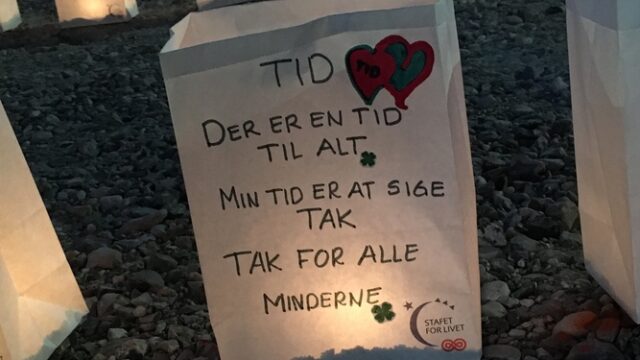 TID
TID
DER ER EN TID
TIL ALT
MIN TID ER AT SIGE
TAK
TAK FOR ALLE
MINDERNE
STAFET
FOR LIVET